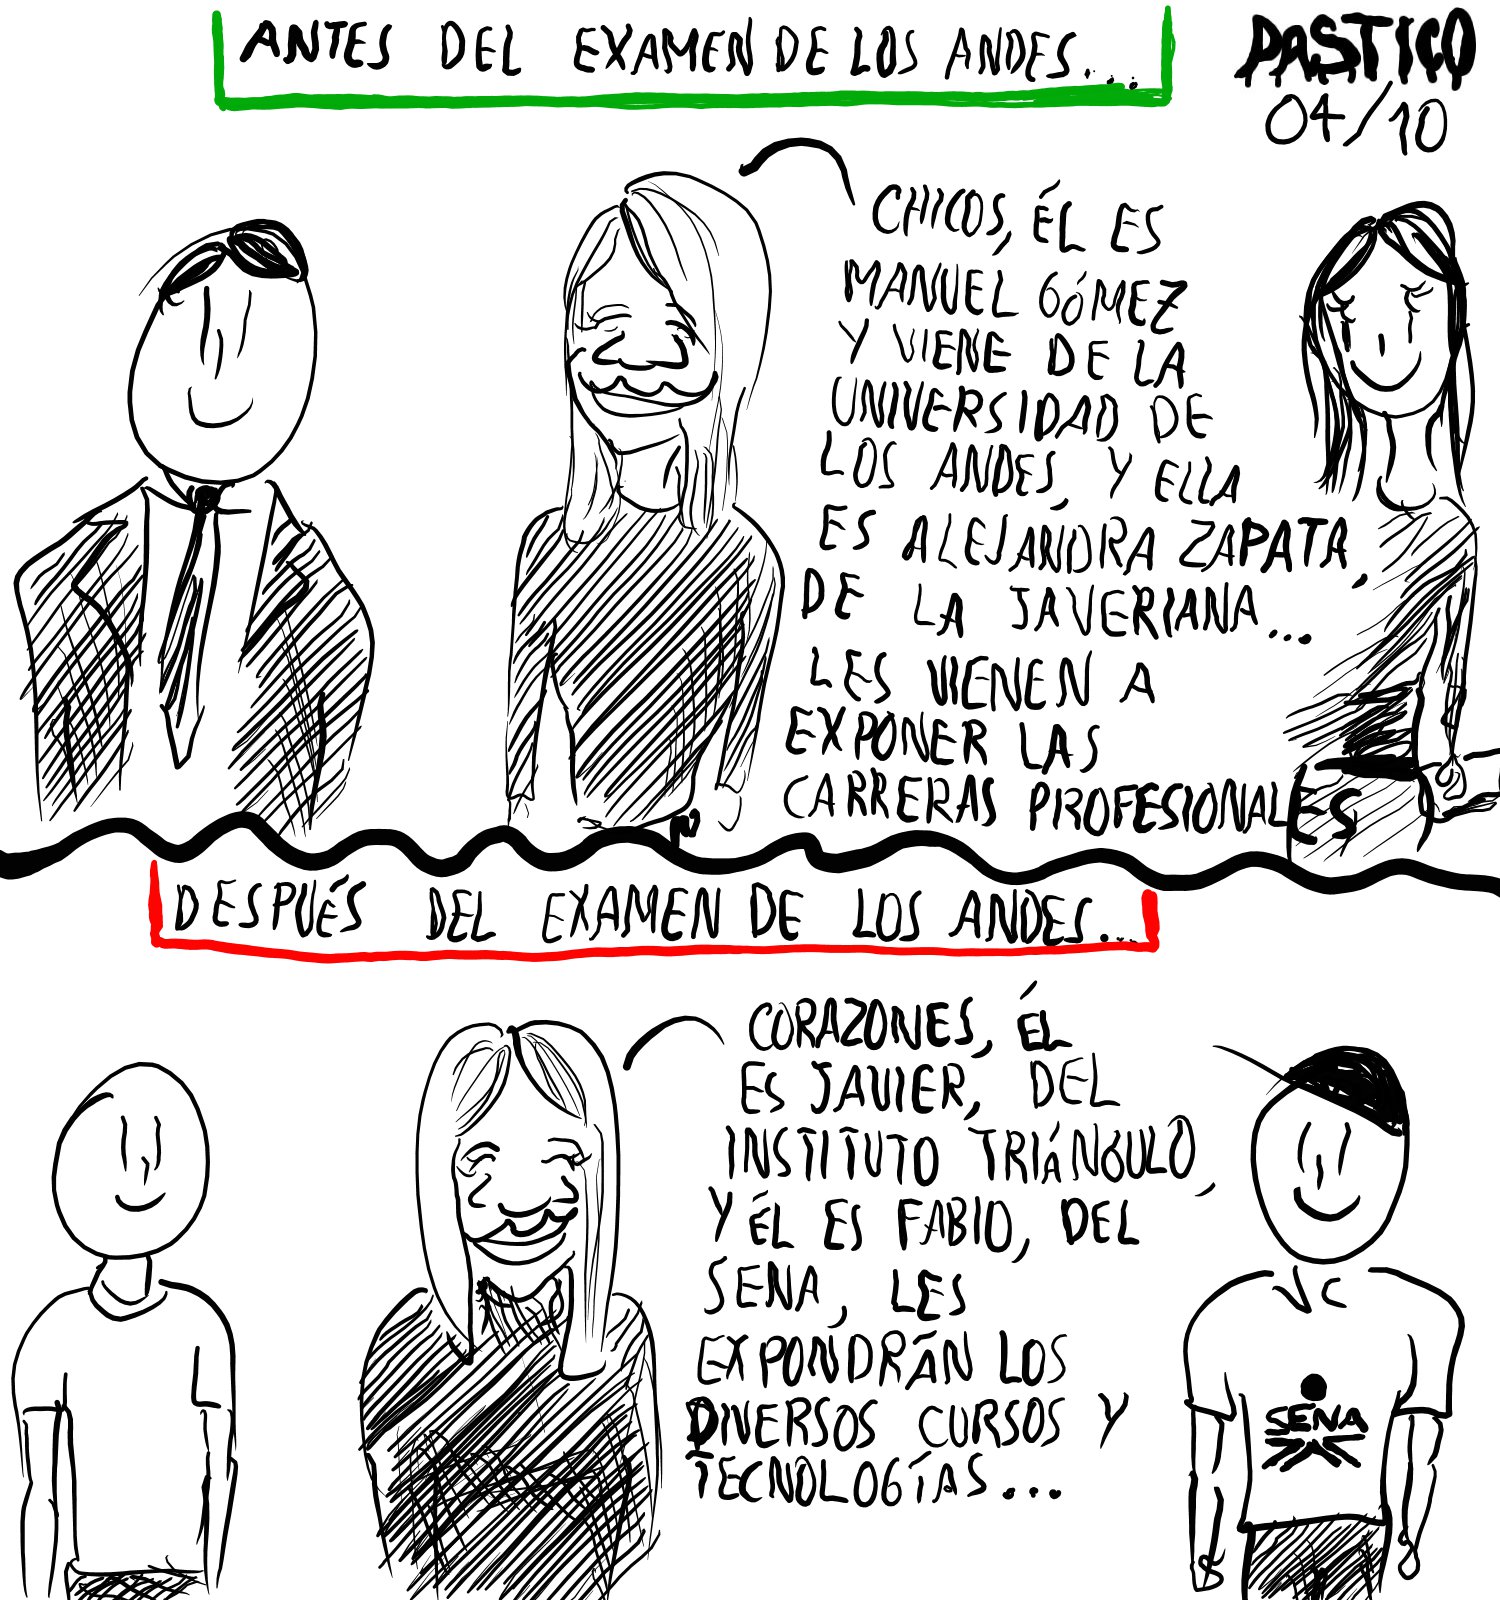 ANTES DEL EXAMEN DE LOS ANDES...
PASTICO
04/10
CHICOS, ÉL ES
MANUEL GÓMEZ
Y VIENE DE LA
UNIVERSIDAD DE
LOS ANDES, Y ELLA
ES ALEJANDRA ZAPATA,
DE LA JAVERIANA...
LES VIENEN A
EXPONER LAS
CARRERAS PROFESIONALES
DESPUÉS DEL EXAMEN DE LOS ANDES...
CORAZONES, ÉL
ES JAVIER, DEL
INSTITUTO TRIÁNGULO,
Y ÉL ES FABIO, DEL
SENA, LES
EXPONDRÁN LOS
DIVERSOS CURSOS Y
TECNOLOGÍAS...
SENA